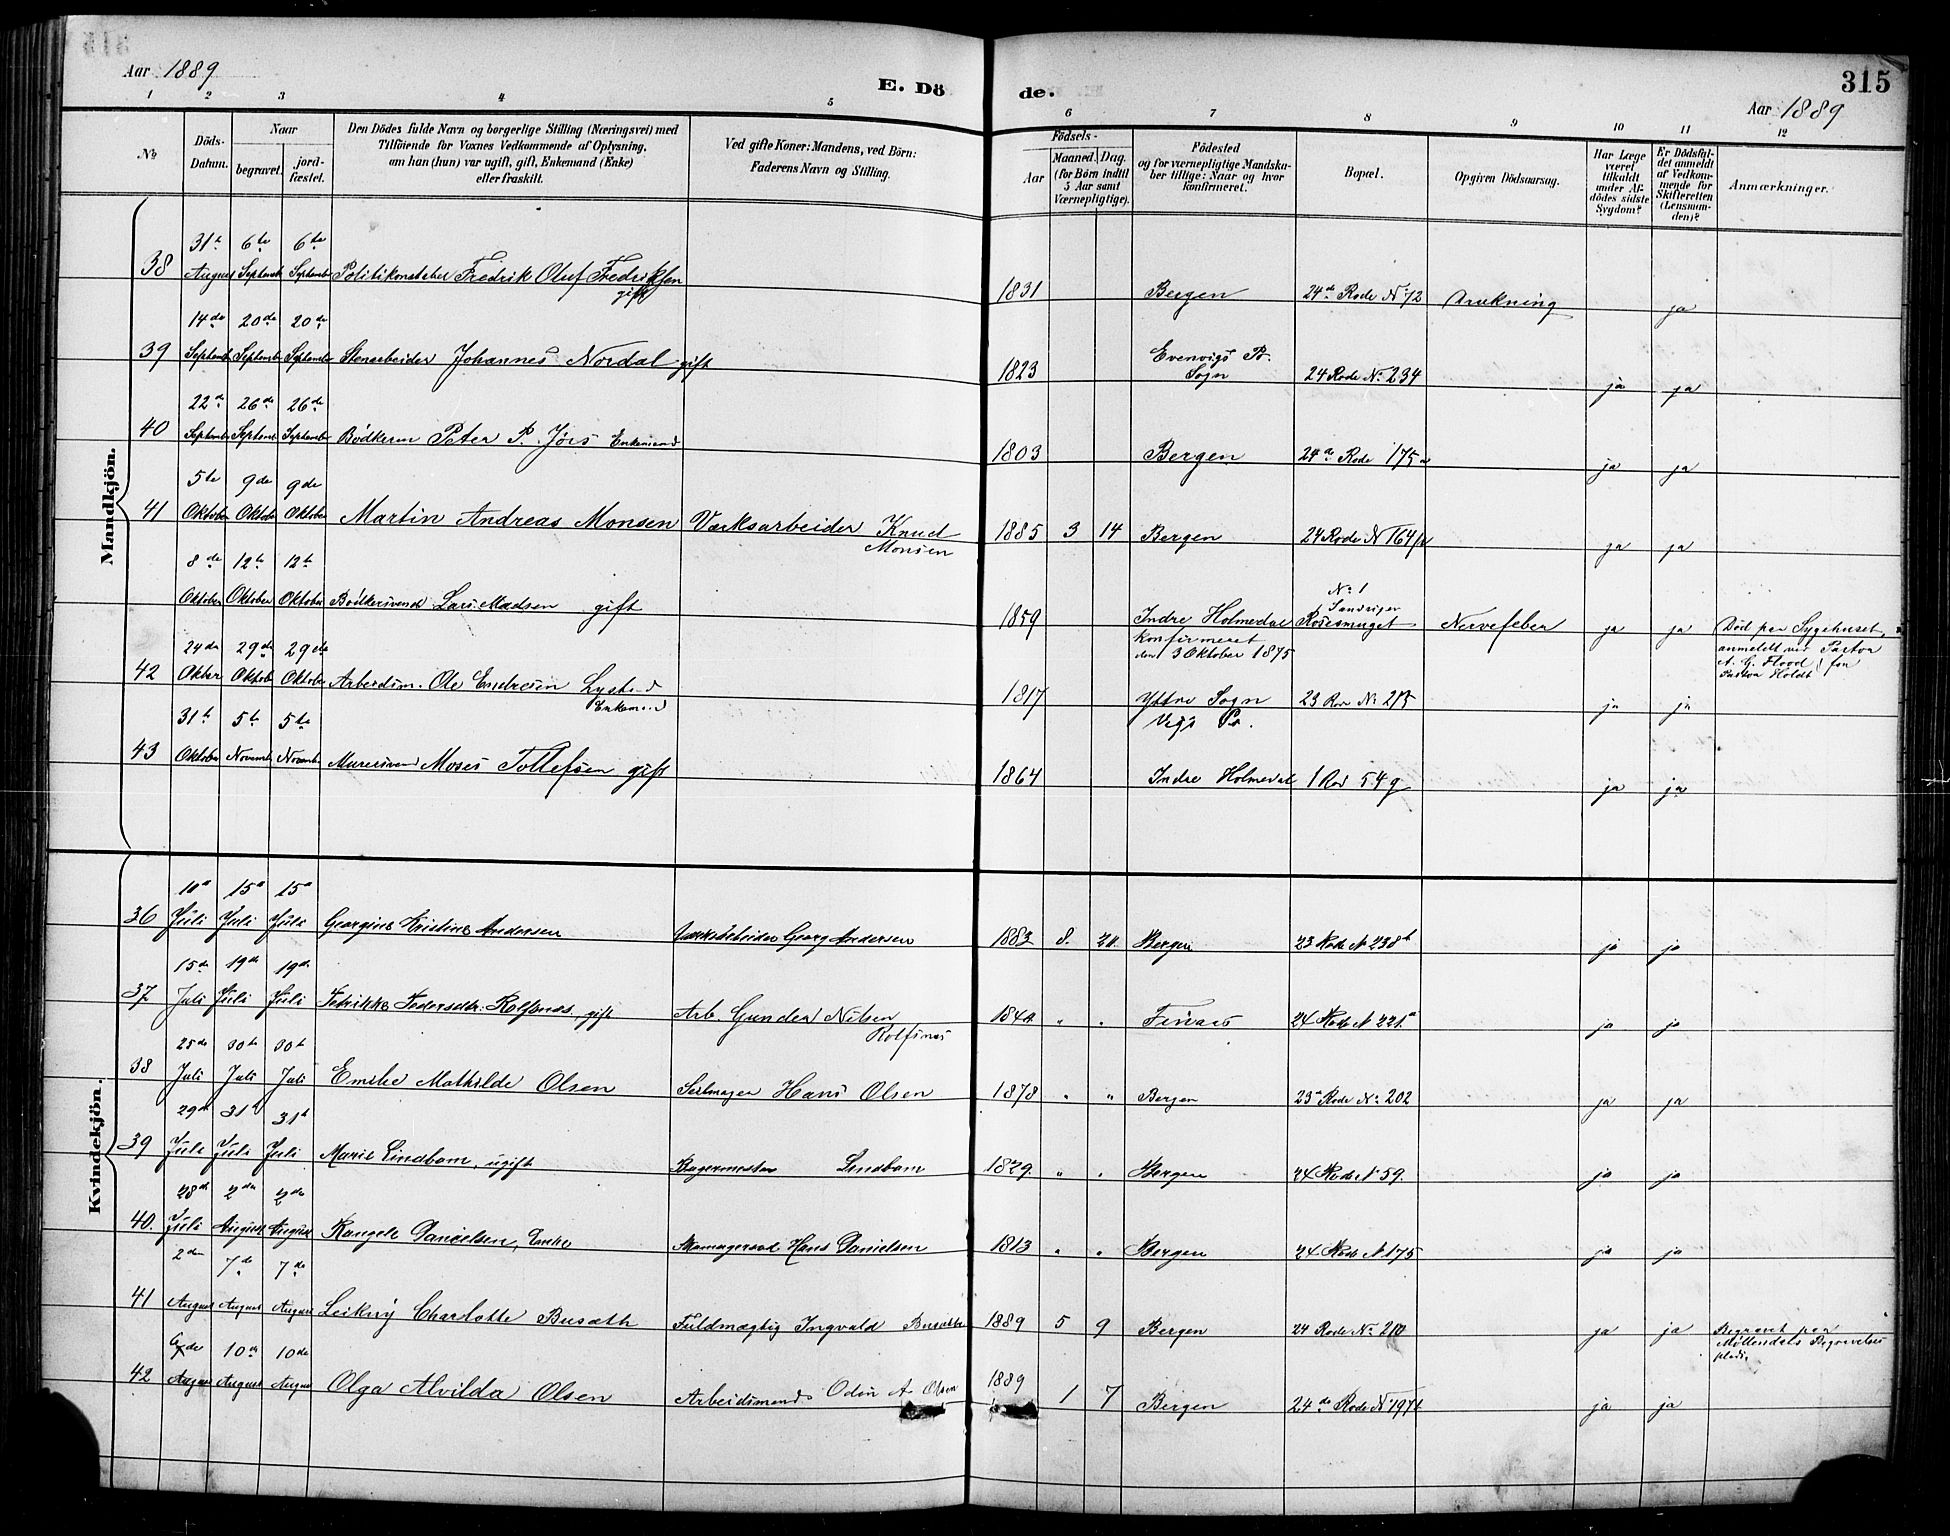 Aar 1889
E. Dö de.
315
Aar 1889
1 2 3 4 5 6 7 8 9 10 11 12
No
Döds-Datum.
Naar
begravet.
jord-fæstet.
Den Dödes fulde Navn og borgerlige Stilling (Næringsvei) med
Tilföiende for Voxnes Vedkommende af Oplysning,
om han (hun) var ugift, gift, Enkemand (Enke)
eller fraskilt.
Ved gifte Koner: Mandens, ved Börn:
Faderens Navn og Stilling.
Födsels-
Aar
Maaned. Dag.
(for Börn indtil
5 Aar samt
Værnepligtige).
Födested
og for værnepligtige Mandska-
ber tillige: Naar og hvor
konfirmeret.
Bopæl.
Opgiven Dödsaarsag.
Har Læge
været
tilkaldt
under Af-
dödes sidste
Sygdom?
Er Dödsfal-
det anmeldt
af Vedkom-
mende for
Skifteretten
(Lensman-
den)?
Anmærkninger.
Mandkjön.
38 31te August 6te September 6te September Politikonstabel Fredrik Oluf Fredriksen gift 1831 Bergen 24de Rode No 72 ja
39 14de September 20de September 20de September Stenarbeider Johannes Nordal gift 1823 Evenvigs Pr. Sogn 24 Rode No 234 ja ja
40 22de September 26de September 26de September Bödkersv Peter P. Jörs Enkemand 1803 Bergen 24de Rode 175a ja ja
41 5te Oktober 9de Oktober 9de Oktober Martin Andreas Monsen Værksarbeider Knud Monsen 1885 3 14 Bergen 24 Rode N 164 ja ja
8de Oktober 12te Oktober 12te Oktober Bödkersvend Lars Madsen gift 1859 Indre Holmedal Konfirmeret den 3 Oktober 1875 No 1 Sandviger Rosesmuget Nervefeber ja ja Död paa Sygehuset, anmeldt ved Pastor A. G. Flood for Pastor Holdt
42 24de Oktber 29de Oktob 29de Oktober Arbeidsm. Ole Endresen Enkemand 1817 Yttre Sogn Pr. 23 Rode No 215 ja ja
43 31te Oktober 5te November 5te November Murersvend Moses Tollefsen gift 1864 Indre Holmedal 1 Rod 54 g ja ja
Kvindekjön.
36 10de Juli 15de Juli 15de Juli Georgine Kristine Andersen Værksarbeider Georg Andersen 1883 8. 20. Bergen 23 Rode N 238b ja ja
37 15de Juli 19de Juli 19de Juli Pedersdtr. Rolfsnes, gift Arb. Gunder Nilsen Rolfsnes " " 24 Rode N 221a ja ja
38 25de Juli 30te Juli 30te Juli Emilie Mathilde Olsen Seilmager Hans Olsen 1878 " " Bergen 23de Rode No 202 ja ja
39 29de Juli 31te Juli 31te Juli Marie Lindbom, ugift Bagermester Lindbom 1829. " " Bergen 24 Rode N 59. ja ja
40. 28de Juli 2den August 2den August Rangele Danielsen, Enke Skomagersvd Hans Danielsen 1813 " " Bergen 24 Rode N 175 ja ja
41 2den August 7de August 7de August Leikny Charlotte Busæth Fuldmægtig Ingvald Busæth 1889 5 9 Bergen 24 Rode No 210 ja ja Begravet paa Möllendals Begravelses plads.
42 August 10de August 10de August Olga Alvilda Olsen Arbeidsmand Odin A Olsen 1889 1 7 Bergen 24de Rode N 197 ja ja